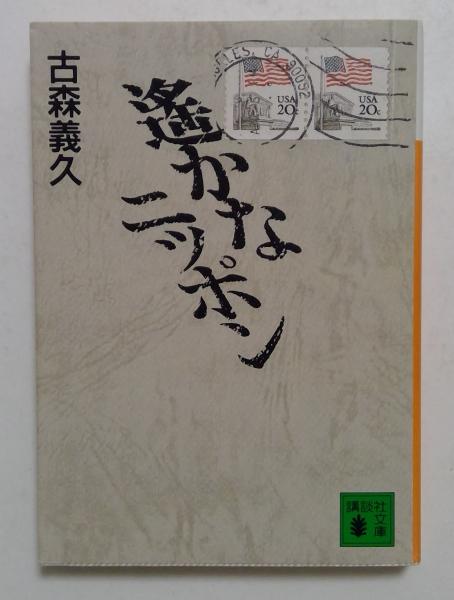 古森義久
遙かな
ニッポン
GELES, CA 90052
USA
20c
USA
20c
講談社
文庫